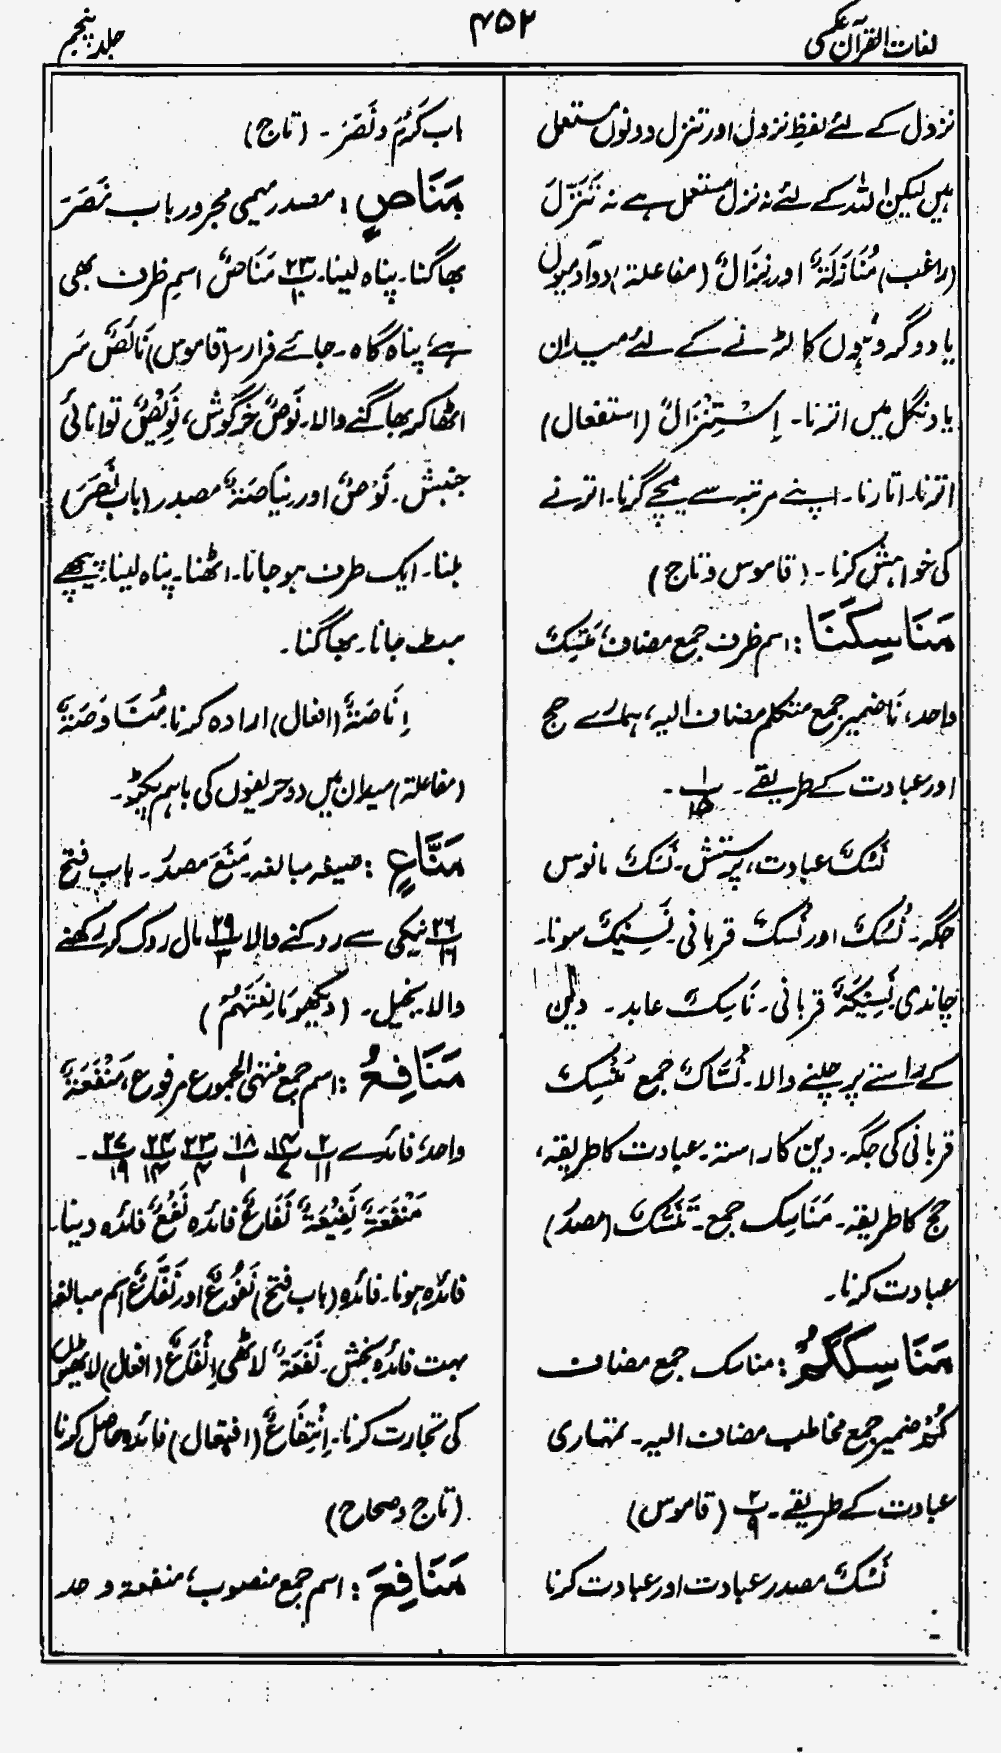 لغات القرآن عکسی
۴۵۲
جلد پنجم
نزول کے لئے لفظِ نزول اور تنزل دونوں مستعمل
ہیں لیکن اللہ کے لئے نہ نزل مستعمل ہے نہ تَنَزَّلَ
(راغب) مُنَازَلَۃٌ اور نِزَالٌ (مفاعلۃ) دو آدمیوں
یا دو گروہوں کا لڑنے کے لئے میدان
یا دنگل میں اترنا۔ اِسْتِنْزَالٌ (استفعال)
اترنا۔ اتارنا۔ اپنے مرتبہ سے نیچے گرنا۔ اترنے
کی خواہش کرنا۔ (قاموس و تاج)
مَنَاسِكَنَا : اسم ظرف جمع مضاف، مَنْسِكٌ
واحد، نَا ضمیر جمع متکلم مضاف الیہ، ہمارے حج
اور عبادت کے طریقے۔ پ ۱/۱۵ ۔
نَسْكٌ عبادت، پرستش۔ نَسْكٌ مانوس
جگہ۔ نُسُكٌ اور نُسْكٌ قربانی۔ نَسِیْكٌ سونا۔
چاندی نَسِیْكَۃٌ قربانی۔ نَاسِكٌ عابد۔ دین
کے راستے پر چلنے والا۔ نُسَّاكٌ جمع مَنْسِكٌ
قربانی کی جگہ۔ دین کا راستہ۔ عبادت کا طریقہ،
حج کا طریقہ۔ مَنَاسِك جمع۔ تَنَسُّكٌ (مصدر)
عبادت کرنا۔
مَنَاسِكَكُمْ : مناسک جمع مضاف
كُمْ ضمیر جمع مخاطب مضاف الیہ۔ تمہاری
عبادت کے طریقے۔ پ ۲/۹ (قاموس)
نَسْكٌ مصدر عبادت اور عبادت کرنا
۔
باب کَرُمَ و نَصَرَ۔ (تاج)
مَنَاصٍ : مصدر میمی مجرور باب نَصَرَ
بھاگنا۔ پناہ لینا۔ پ ۲۳/۱۰ مَنَاصٌ اسم ظرف بھی
ہے، پناہ گاہ۔ جائے فرار۔ (قاموس) نَائِصٌ سر
اٹھا کر بھاگنے والا۔ نَوْصٌ خرگوش، نَوِیْصٌ توانائی
جنبش۔ نَوْصٌ اور نِیَاصَۃٌ مصدر (باب نَصَرَ)
ہلنا۔ ایک طرف ہو جانا۔ اٹھنا۔ پناہ لینا۔ پیچھے
ہٹ جانا۔ بھاگنا۔
اِنَاصَۃٌ (افعال) ارادہ کرنا مُنَاوَصَۃٌ
(مفاعلۃ) میدان میں دو حریفوں کی باہم پکڑ۔
مَنَّاعٍ : صیغہ مبالغہ۔ مَنَعَ مصدر۔ باب فتح
پ ۲۶/۱۶ نیکی سے روکنے والا پ ۲۹/۳ مال روک کر رکھنے
والا۔ بخیل۔ (دیکھو مَانِعَتُهُمْ)
مَنَافِعُ : اسم جمع منتہی الجموع مرفوع، مَنْفَعَۃٌ
واحد، فائدے پ ۲/۱۱ پ ۱۴/۷ پ ۱۸/۱ پ ۲۳/۴ پ ۲۴/۱۴ پ ۲۷/۱۹ ۔
مَنْفَعَۃٌ نَفِیْعَۃٌ نَفَاعٌ فائدہ نَفْعٌ فائدہ دینا۔
فائدہ ہونا۔ فائدہ (باب فتح) نَفُوْعٌ اور نَفَّاعٌ اسم مبالغہ
بہت فائدہ بخش۔ نَفْعَۃٌ لاٹھی اِنْفَاعٌ (افعال) لاٹھیوں
کی تجارت کرنا۔ اِنْتِفَاعٌ (افتعال) فائدہ حاصل کرنا
(تاج و صحاح)
مَنَافِعَ : اسم جمع منصوب، منفعۃ واحد